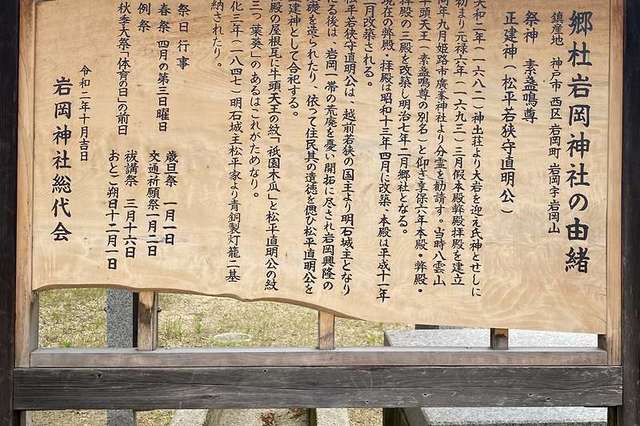 郷社岩岡神社の由緒
鎮座地 神戸市西区岩岡町岩岡字岩岡山
祭神 素盞嗚尊
正建神(松平若狭守直明公)
天和二年(一六八二)神出荘より大岩を迎え氏神とせしに
始まり元禄六年(一六九三)三月假本殿弊殿拝殿を建立
同年九月姫路市廣峯神社より分霊を勧請す。当時八雲山
牛頭天王(素盞嗚尊の別名)と仰ぎ享保六年本殿・弊殿・
拝殿の三殿を改築し明治七年二月郷社となる。
現在の弊殿・拝殿は昭和十三年四月に改築・本殿は平成十一年
月改築される。
松平若狭守直明公は、越前若狭の国主より明石城主となり
る後は、岩岡一帯の荒廃を憂い開拓に尽され岩岡興隆の
礎を造られたり、依って住民其の遺徳を偲び松平直明公を
建神として合祀する。
殿の屋根瓦に牛頭天王の紋「祇園木瓜」と松平直明公の紋
三つ葉葵」のあるはこれがためなり。
化三年(一八四七)明石城主松平家より青銅製灯籠二基
納されたり。
祭日行事
春祭 四月の第三日曜日
例祭
秋季大祭「体育の日」の前日
歳旦祭 一月一日
交通祈願祭一月二日
祓講祭 三月十六日
おとご朔日十二月一日
令和二年十月吉日
岩岡神社総代会